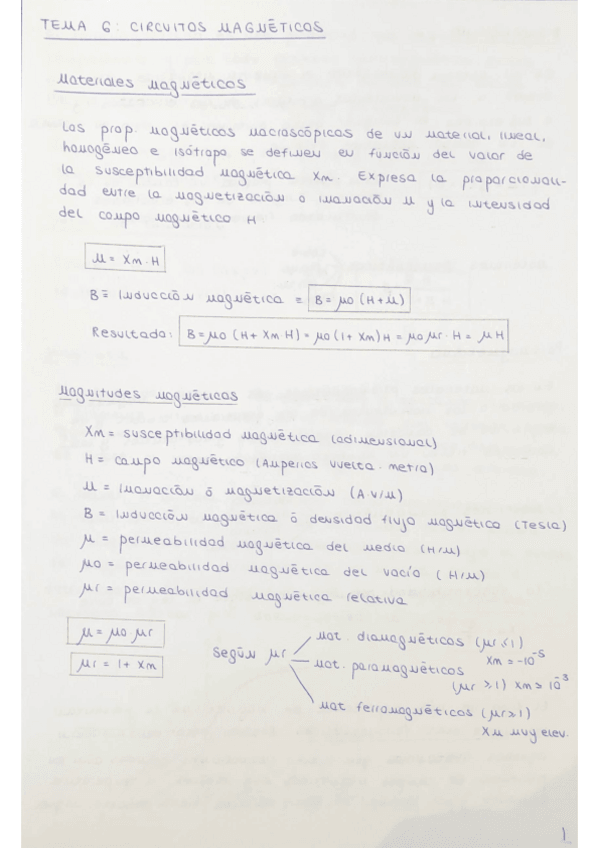 TEMA 6: CIRCUITOS MAGNÉTICOS
Materiales magnéticos
Las prop. magnéticas macroscópicas de un material, lineal,
homogéneo e isótropo se definen en función del valor de
la susceptibilidad magnética Xm. Expresa la proporcionali-
dad entre la magnetización o imanación M y la intensidad
del campo magnético H
M = Xm · H
B = Inducción magnética = B = μo (H+M)
Resultado: B = μo (H + Xm H) = μo (1 + Xm) H = μo μr · H = μ H
Magnitudes magnéticas
Xm = susceptibilidad magnética (adimensional)
H = campo magnético (Amperios vuelta · metro)
M = Imanación ó magnetización (A·v/M)
B = Inducción magnética ó densidad flujo magnético (Tesla)
μ = permeabilidad magnética del medio (H/M)
μo = permeabilidad magnética del vacío (H/M)
μr = permeabilidad magnética relativa
μ = μo μr
μr = 1 + Xm
Según μr
mat. diamagnéticos (μr ≤ 1)
Xm = -10^-5
mat. paramagnéticos
(μr ≥ 1) Xm > 10^-3
mat ferromagnéticos (μr > 1)
Xm muy elev.
1